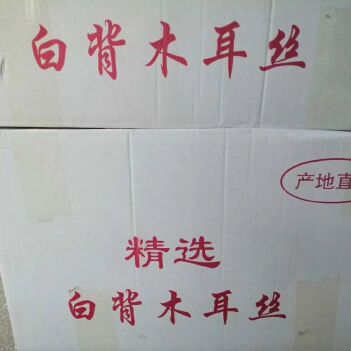 白背木耳丝
产地直
精选
白背木耳丝